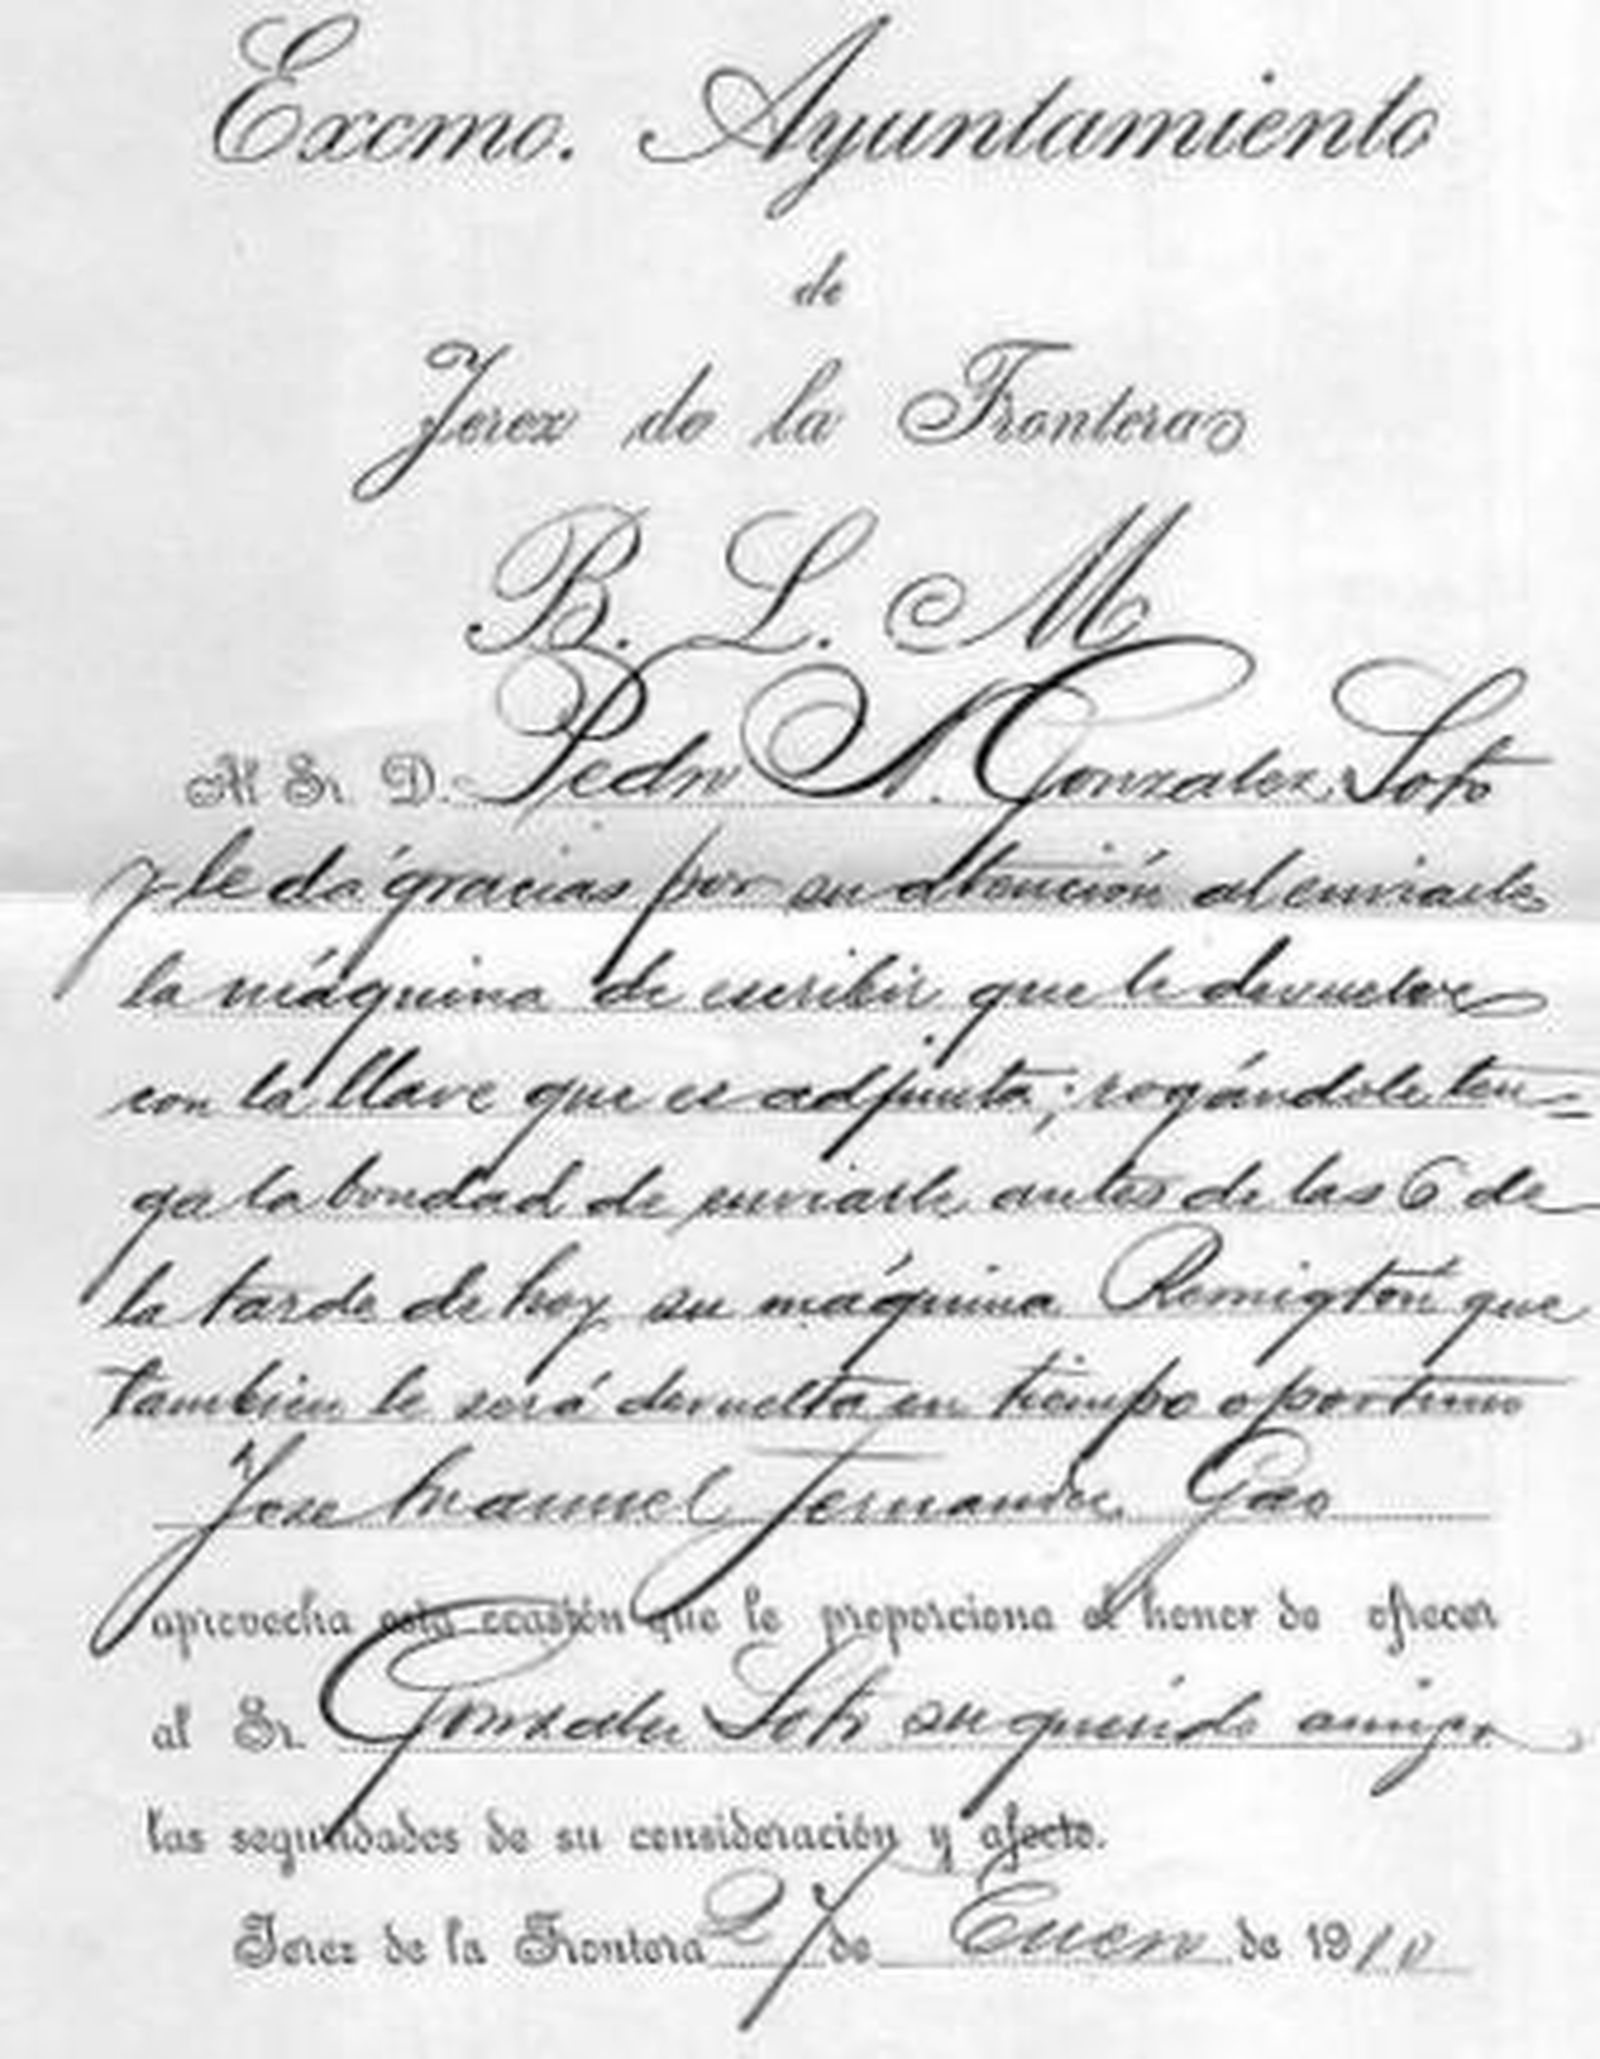 Excmo. Ayuntamiento
de
Jerez de la Frontera
B. L. M
Al Sr. D. Pedro N. Gonzalez Soto
y le dá gracias por su atención al enviarle
la máquina de escribir que le devuelve
con la llave que es adjunta; rogándole ten=
ga la bondad de enviarle antes de las 6 de
la tarde de hoy su máquina Remigton que
tambien le será devuelta en tiempo oportuno
Jose Manuel Fernandez Gao
aprovecha esta ocasión que le proporciona el honor de ofrecer
al Sr. Gonzalez Soto su querido amigo
las seguridades de su consideración y afecto.
Jerez de la Frontera 27 de Enero de 1910